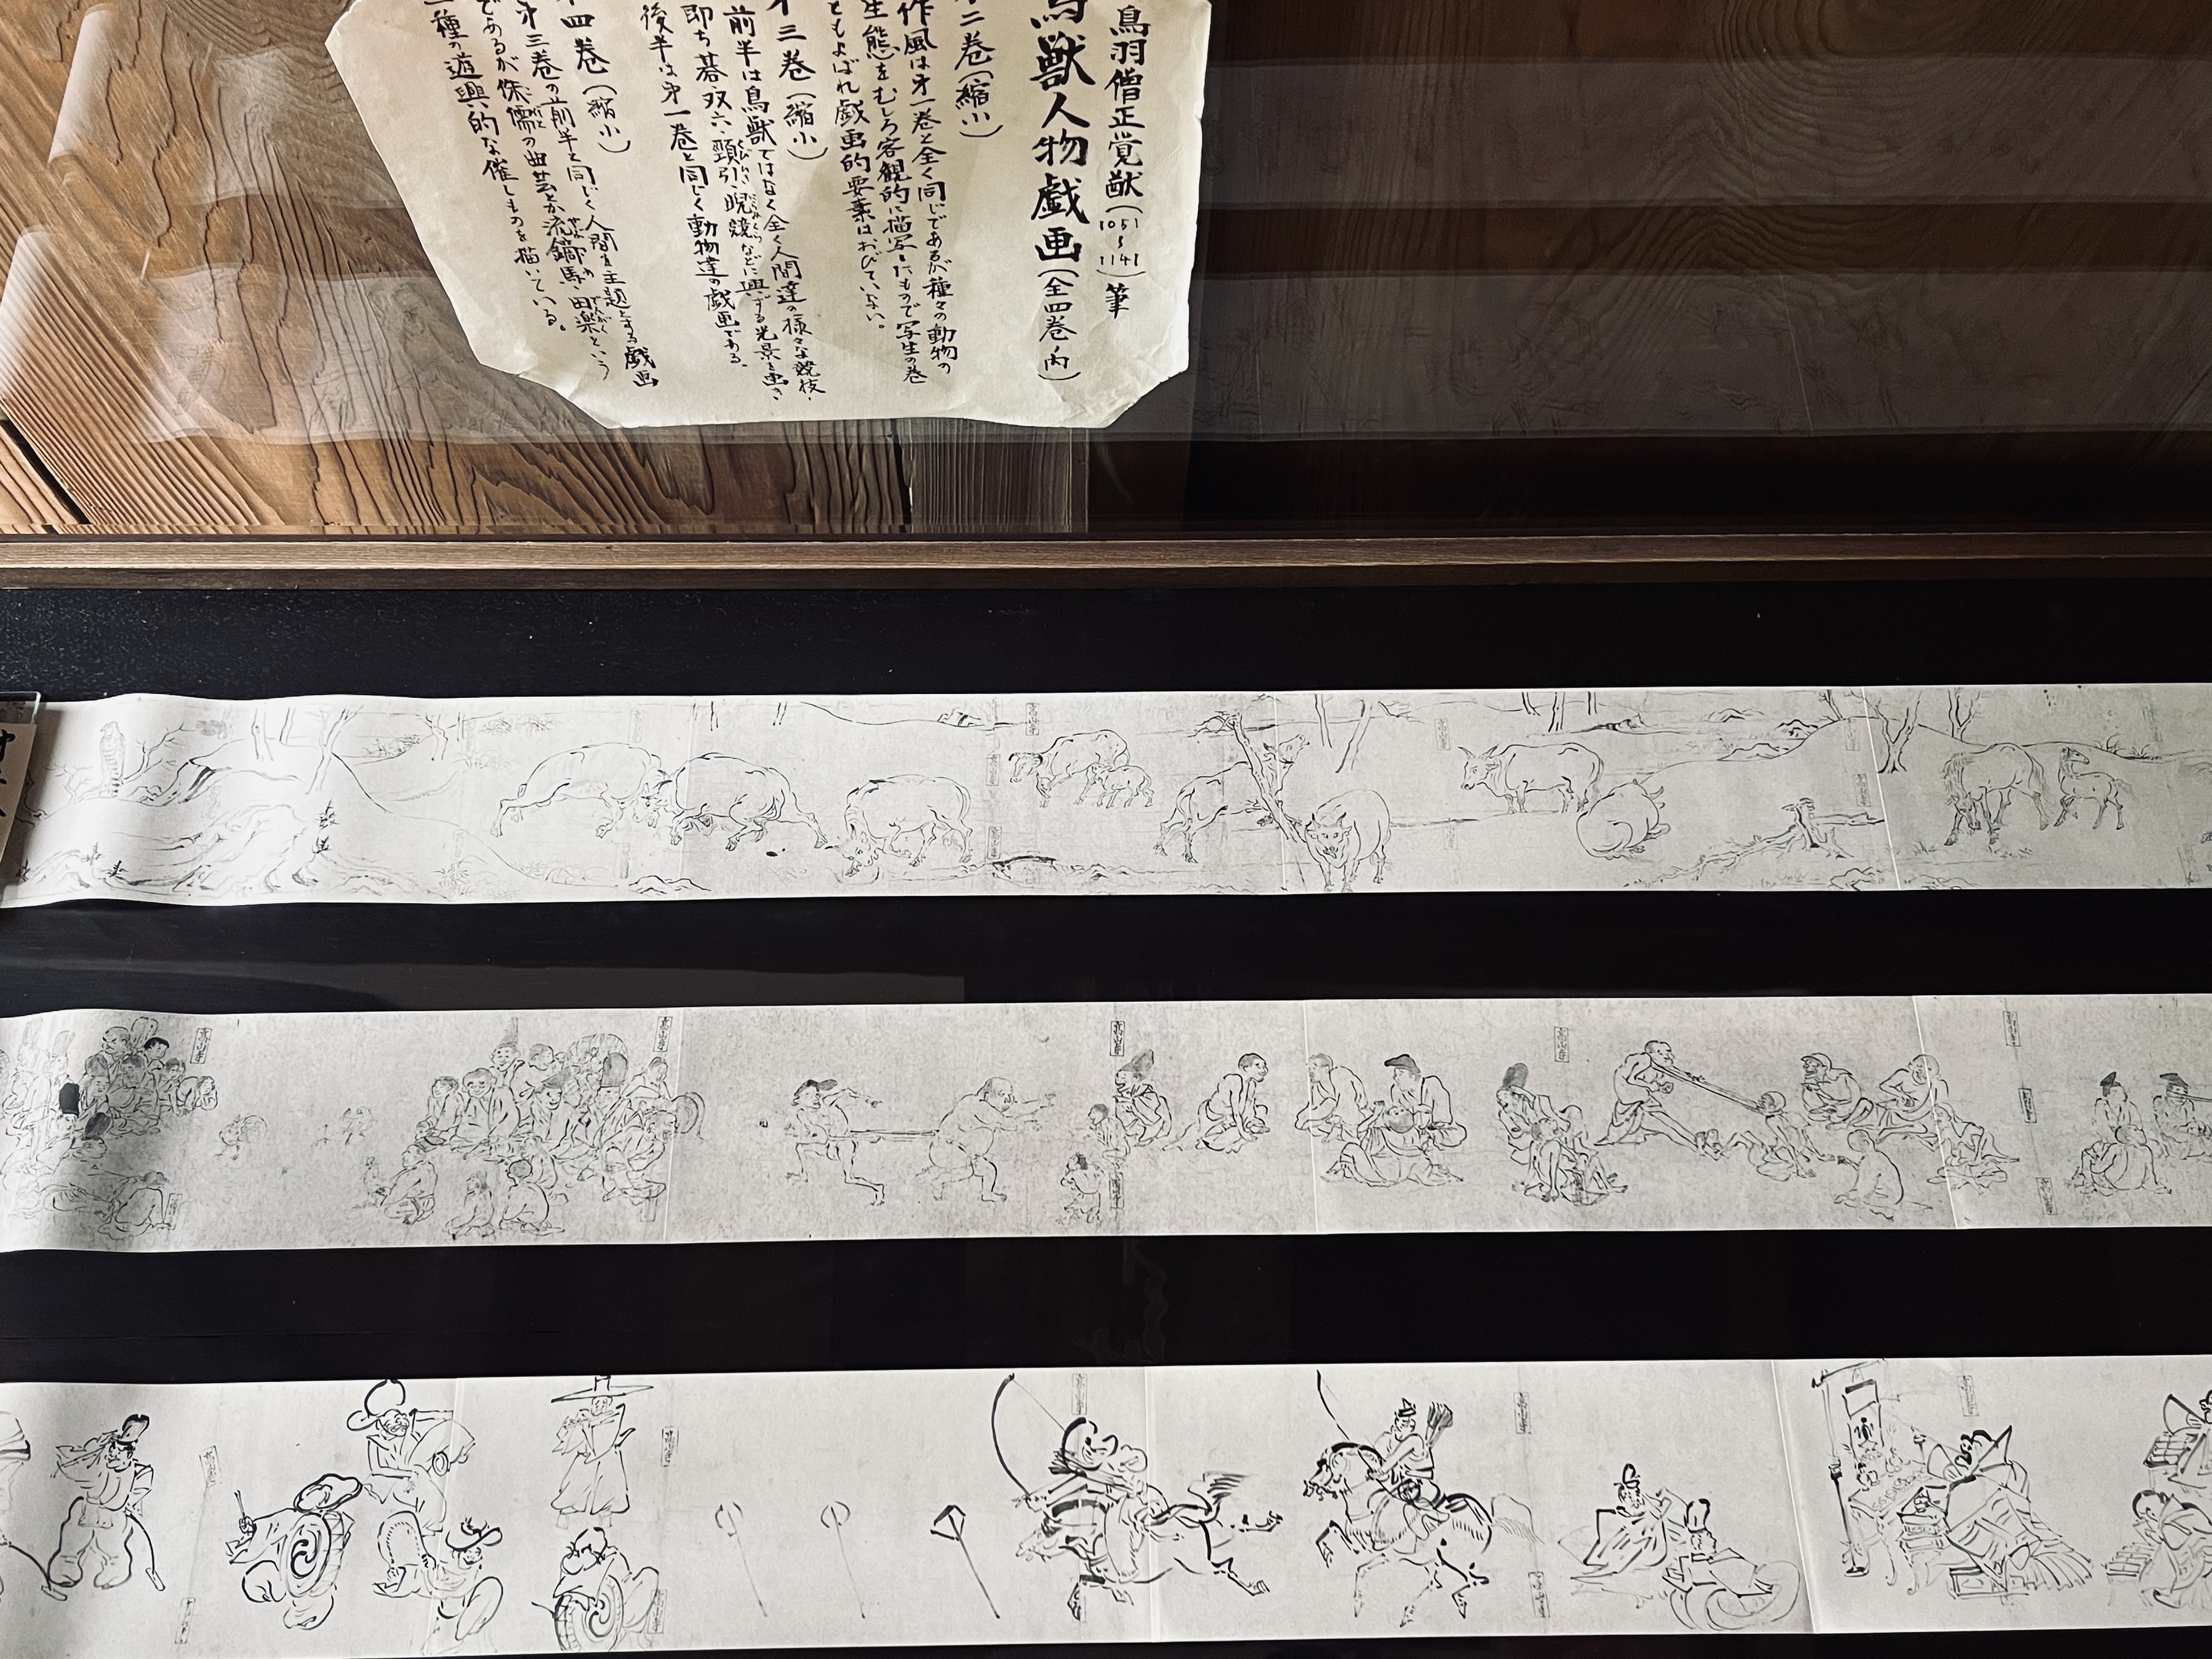 鳥羽僧正覚猷(1051〜1141)筆
鳥獣人物戯画(全四巻ノ内)
二巻(縮小)
作風は才一巻と全く同じであるが種々の動物の
生態をむしろ客観的に描写したもので写生の巻
ともよばれ戯画的要素はおびていない。
才三巻(縮小)
前半は鳥獣ではなく全く人間達の様々な競技、
即ち碁・双六・頸引・睨競などに興ずる光景を画き
後半は才一巻と同じく動物達の戯画である。
四巻(縮小)
才三巻の前半と同じく人間を主題とする戯画
であるが侏儒の曲芸とか流鏑馬、田楽という
一種の遊興的な催しものを描いている。
高山寺
高山寺
高山寺
高山寺
高山寺
高山寺